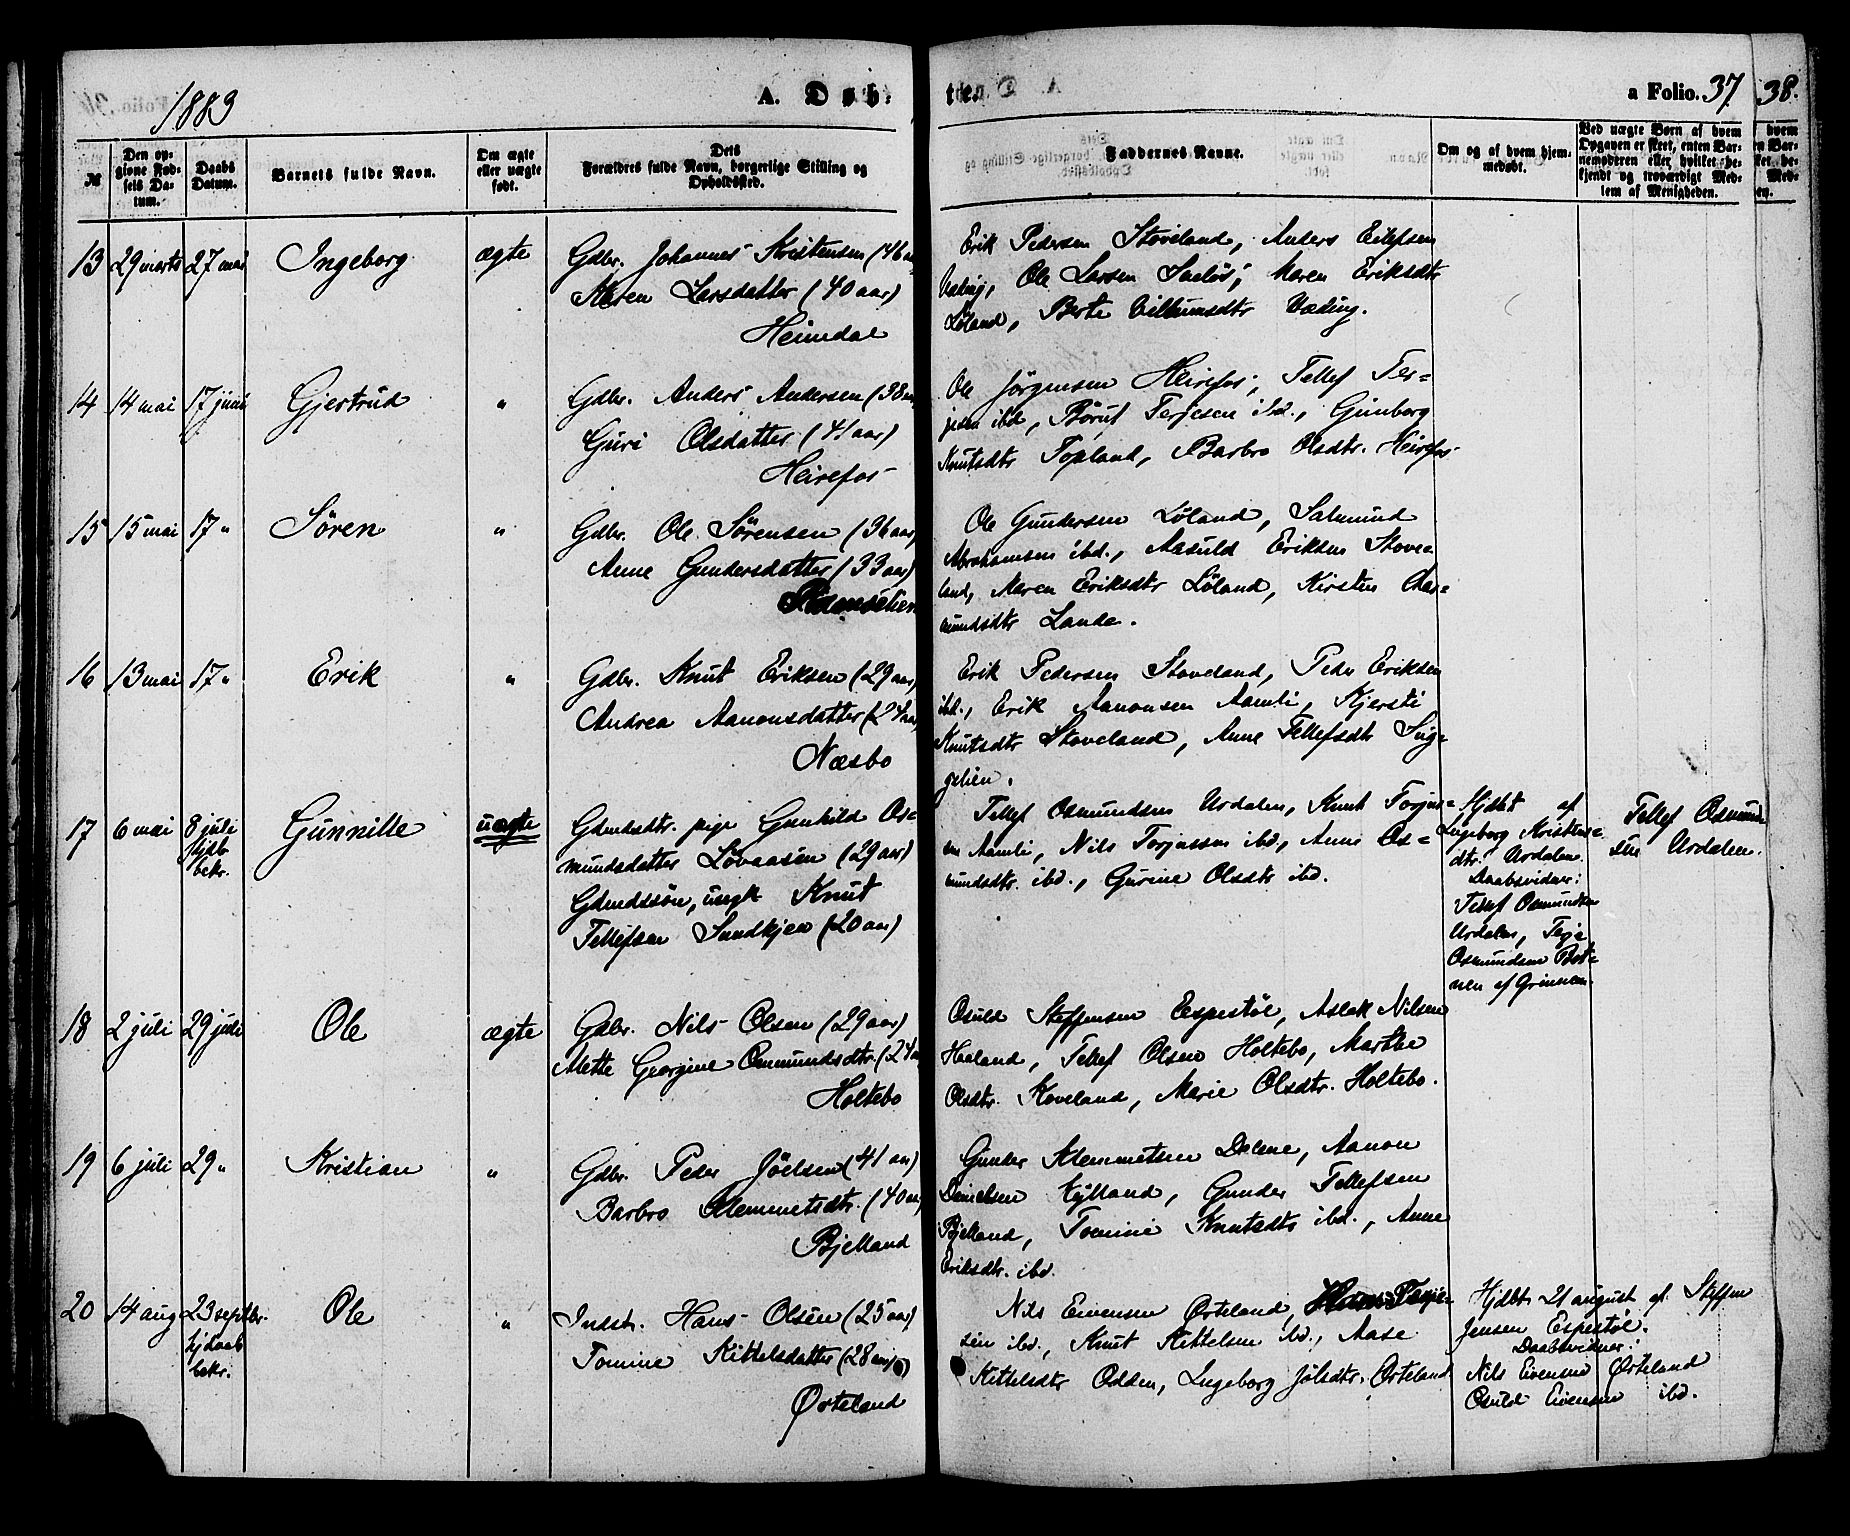 1883
A. Døb-
te.
a Folio. 37. 38.
№
Den op-
givne Fød-
sels Da-
tum.
Daabs
Datum.
Barnets fulde Navn.
Om ægte
eller uægte
født.
Dets
Forældres fulde Navn, borgerlige Stilling og
Opholdssted.
Faddernes Navne.
Om og af hvem hjem-
medøbt.
Ved uægte Børn af hvem
Opgaven er skeet, enten Bar-
nemoderen eller hvilket be-
kjendt og troværdigt Med-
lem af Menigheden.
13 29 marts 27 mai Ingeborg ægte
Gdbr. Johannes Kristensen (46 aar)
Maren Larsdatter (40 aar)
Heimdal
Erik Pedersen Stoveland, Anders Eilefsen
Væding, Ole Larsen Saeløs, Maren Eriksdtr
Løland, Berte Villumsdtr Væding.
14 14 mai 17 juni Gjertrud "
Gdbr. Anders Andersen (38 aar)
Guri Olsdatter (41 aar)
Heirefos
Ole Jørgensen Heirefos, Tellef Ter-
jesen ibd, Børut Terjesen ibd., Gunborg
Knutsdtr Topland, Barbro Olsdtr. Heirefos
15 15 mai 17 " Søren "
Gdbr. Ole Sørensen (36 aar)
Anne Gundersdatter (33 aar)
Ole Gundersen Løland, Salmund
Abrahamsen ibd., Aasuld Eriksen Stove-
land, Maren Eriksdtr Løland, Kirsten
mundsdtr Lande.
16 13 mai 17 " Erik "
Gdbr. Knut Eriksen (29 aar)
Andrea Aanonsdatter (24 aar)
Næsbo
Erik Pedersen Stoveland, Peder Eriksen
ibd., Erik Aanonsen Aamli, Kjersti
Knutsdtr Stoveland, Anne Tellefsdtr Sug-
gelien.
17 6 mai 8 juli Gunnille uægte
hjdb.
bekr.
Gdmdsdtr. pige Gunhild Os-
mundsdatter Løvaasen (29 aar)
Gdmdssøn, ungk Knut
Tellefsen Sundkjen (20 aar)
Tellef Osmundsen Urdalen, Knut Torjus-
sen Aamli, Nils Torjussen ibd., Anne Os-
mundsdtr. ibd., Gurine Olsdtr ibd.
Hjdbt af
Ingeborg Kristens-
dtr. Urdalen.
Daabsvidner:
Tellef Osmundsen
Urdalen, Terje
Osmundsen Bot-
nen af Grinnem.
Tellef Osmund-
sen Urdalen.
18 2 juli 29 juli Ole ægte
Gdbr. Nils Olsen (29 aar)
Mette Georgine Osmundsdtr. (24 aar)
Holtebo
Osuld Steffensen Espestøl, Aslak Nilsen
Haaland, Tellef Olsen Holtebo, Marthe
Olsdtr. Koveland, Marie Olsdtr. Holtebo.
19 6 juli 29 " Kristian "
Gdbr. Peder Joelsen (41 aar)
Barbro Klemmetsdtr. (40 aar)
Bjelland
Gunder Klemmetsen Dalene, Aanon
Danielsen Kylland, Gunder Tellefsen
Bjelland, Tomine Knutsdtr ibd., Anne
Eriksdtr. ibd.
20 14 aug 23 septbr. Ole "
hjdaab
bekr.
Indst. Hans Olsen (25 aar)
Tomine Kittelsdatter (28 aar)
Ørteland
Nils Eivensen Ørteland, Hans Terje-
sen ibd., Knut Kittelsen ibd., Aase
Kittelsdtr Odden, Ingeborg Jølsdtr. Ørteland
Hjdbt 21 august af Steffen
Jensen Espestøl.
Daabsvidner:
Nils Eivensen Ørteland
Osuld Eivensen ibd.